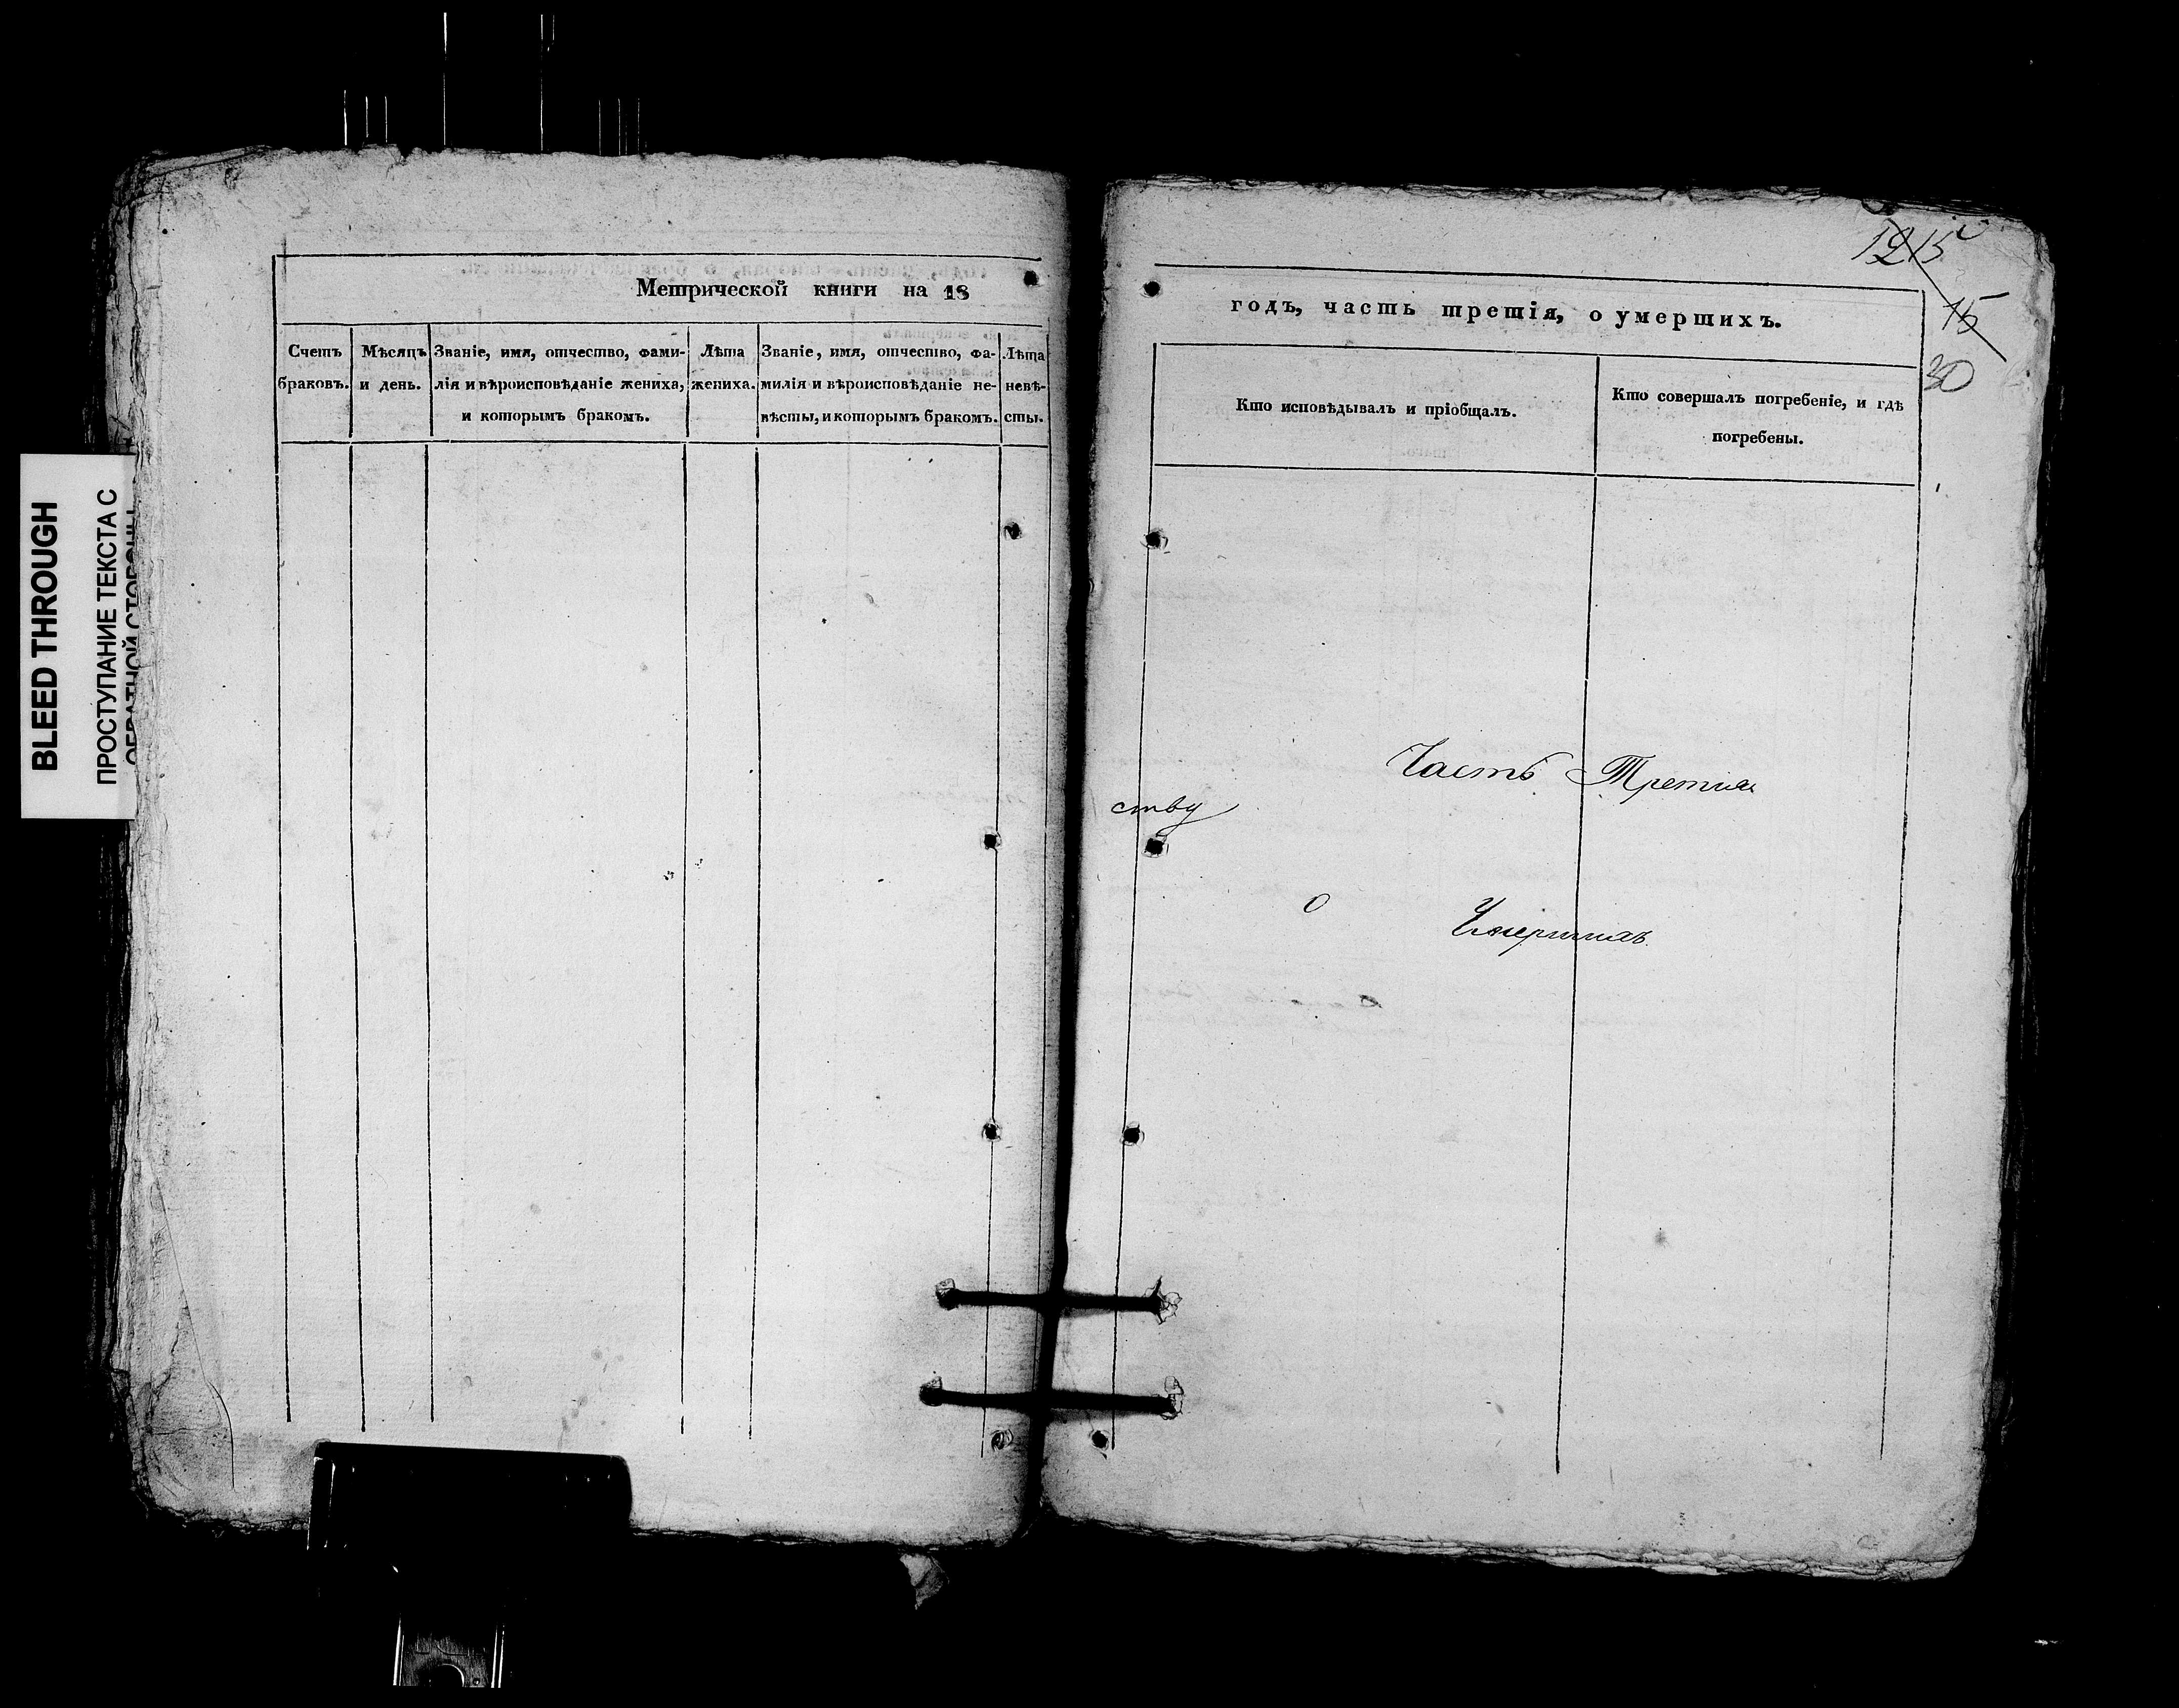 BLEED THROUGH
ПРОСТУПАНИЕ ТЕКСТА С
ОБРАТНОЙ СТОРОНЫ
Метрической книги на 18
Счетъ браковъ.
Мѣсяцъ и день.
Званіе, имя, отчество, фами-
лія и вѣроисповѣданіе жениха,
и которымъ бракомъ.
Лѣта жениха.
Званіе, имя, отчество, фа-
милія и вѣроисповѣданіе не-
вѣсты, и которымъ бракомъ.
Лѣта невѣ-
сты.
12 15
15
30
годъ, часть третія, о умершихъ.
Кто исповѣдывалъ и пріобщалъ.
Кто совершалъ погребеніе, и гдѣ
погребены.
Часть Третія
ству
О Умершихъ.